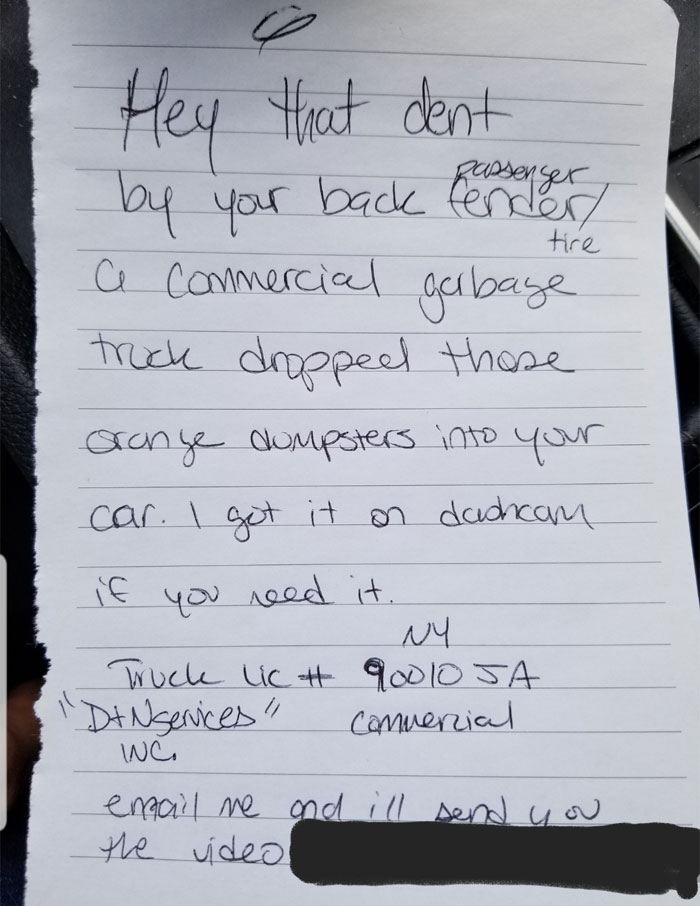 Hey that dent
by your back passenger fender/
tire
a commercial garbage
truck dropped those
orange dumpsters into your
car. I got it on dashcam
if you need it.
NY
Truck Lic # 90010JA
"D+N services" commercial
INC.
email me and ill send you
the video